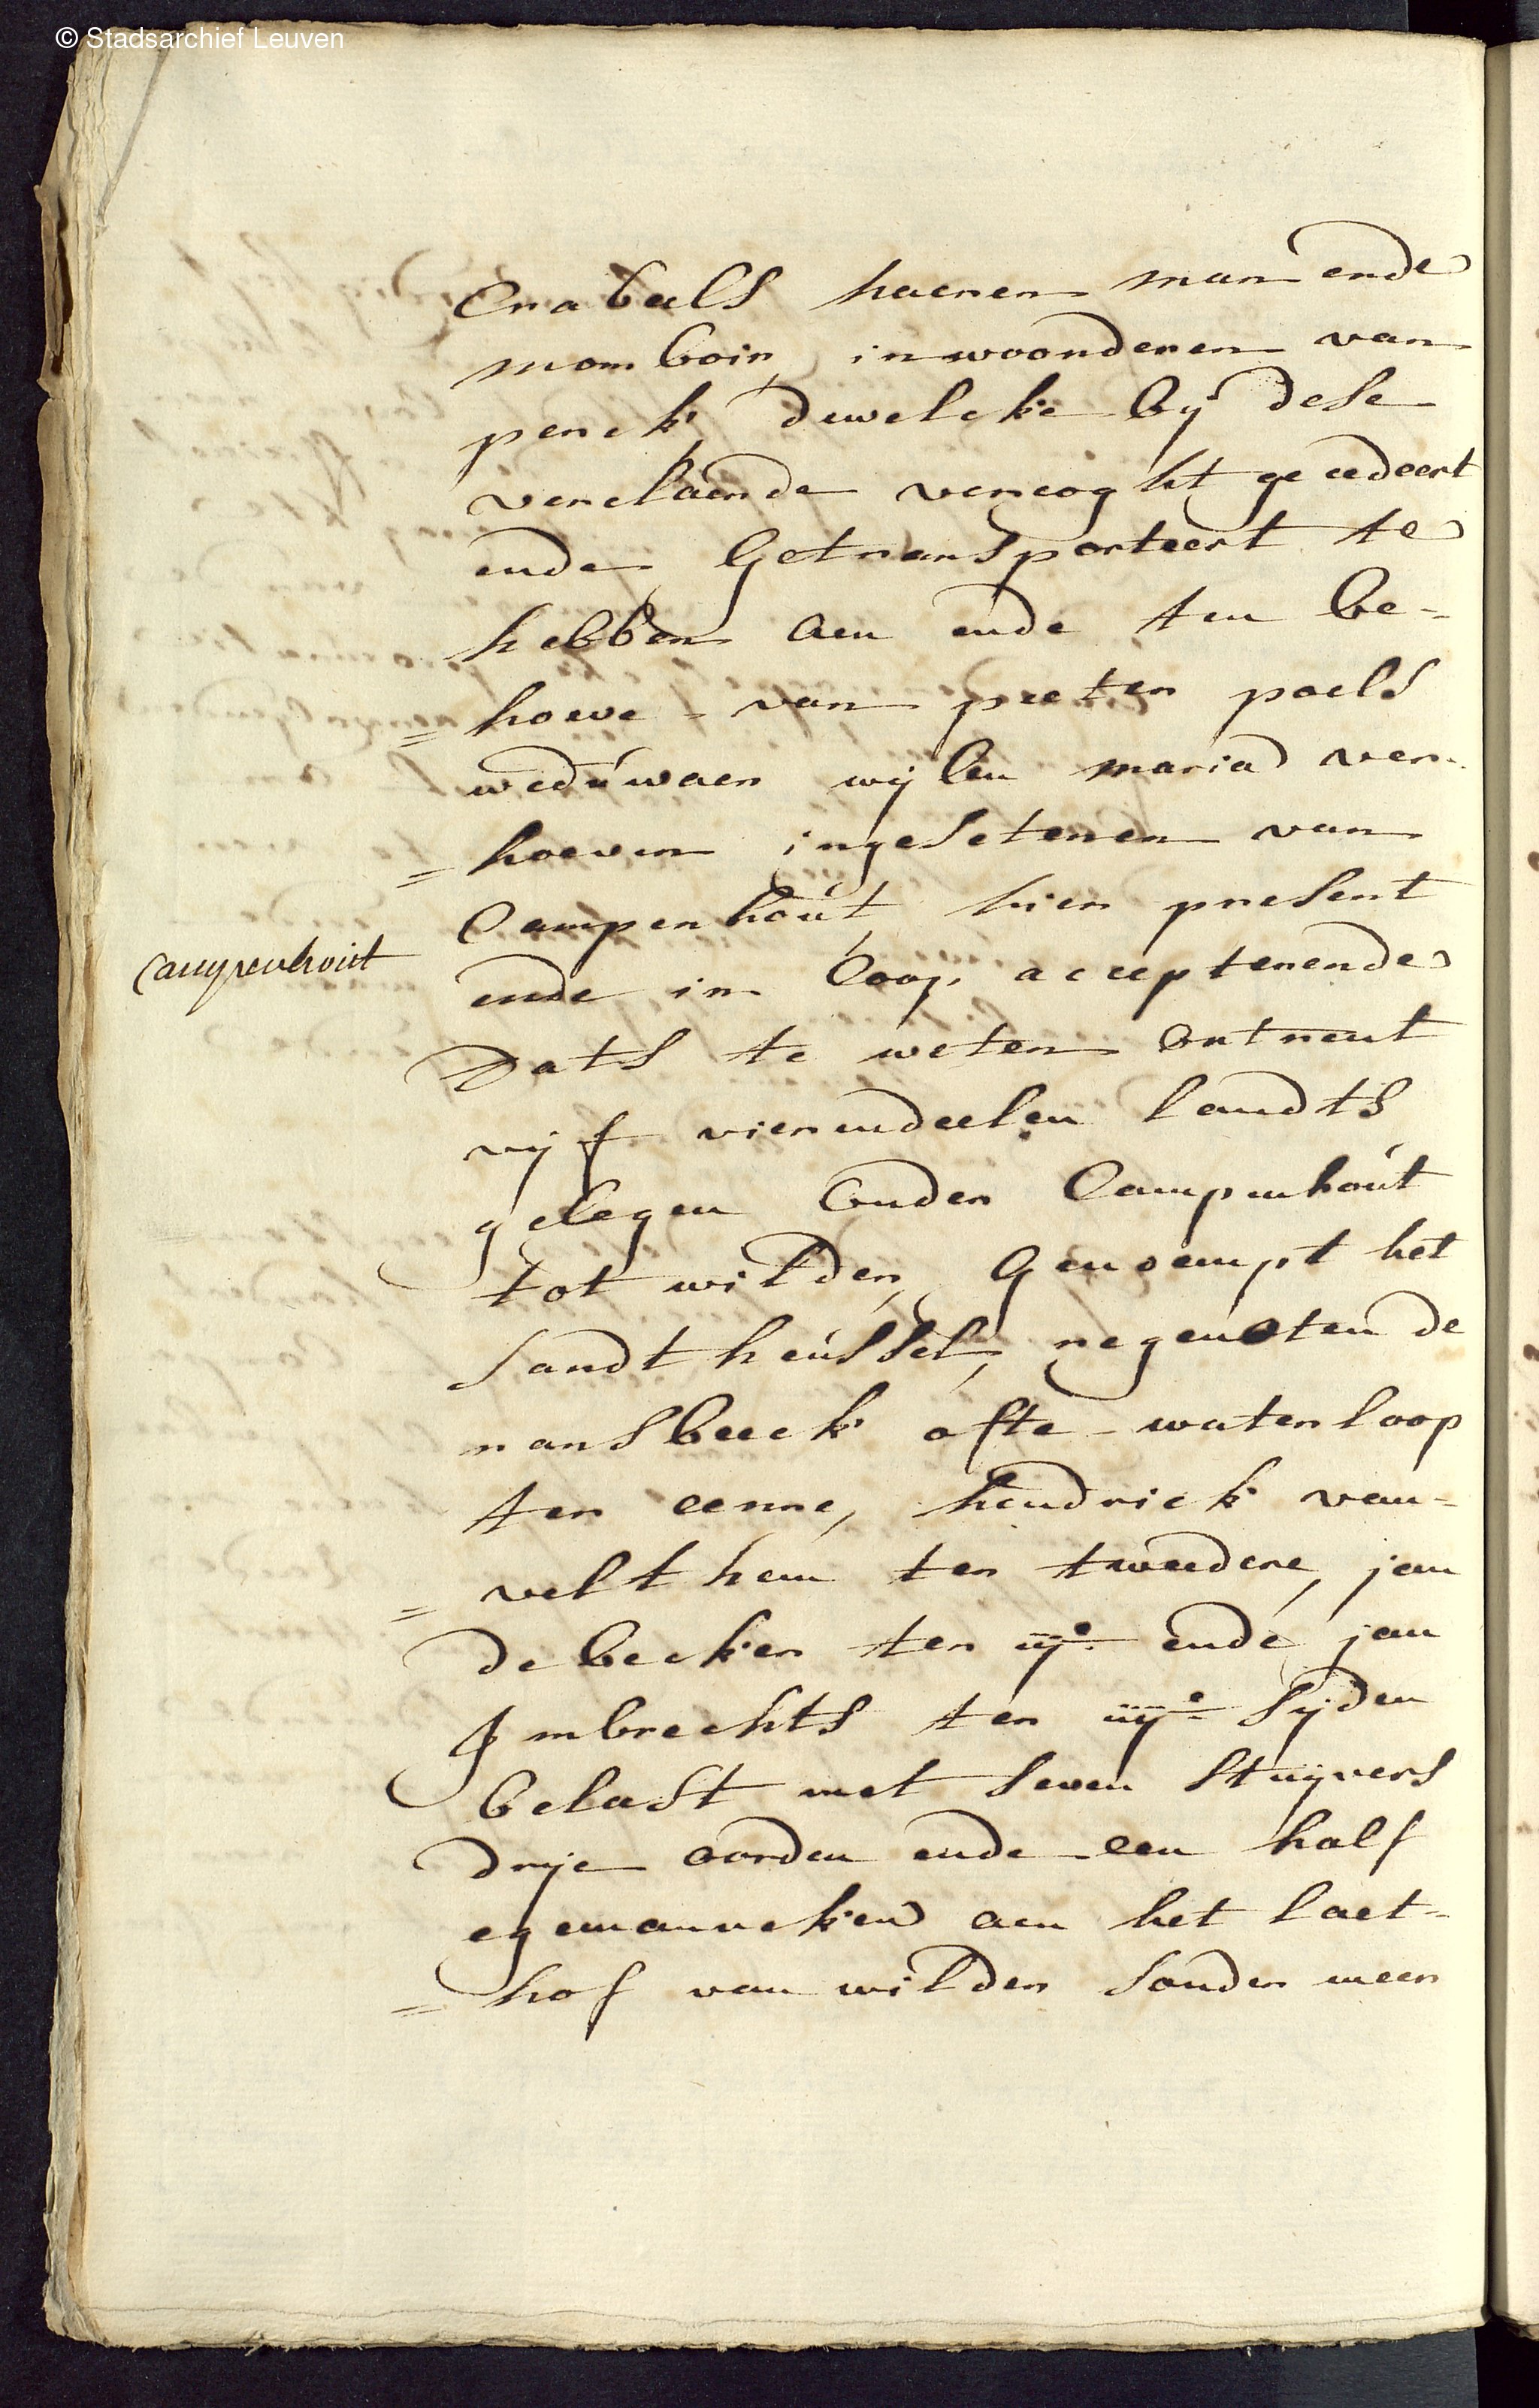 © Stadsarchief Leuven
Crabeels haeren man ende
momboir, inwoonderen van
perck, dewelcke bij dese
verclaerde vercoght gecedeert
ende Getransporteert te
hebben aen ende ten be-
=hoeve van peeter poels
weduwaer wijlen maria ver-
=hoeven ingesetenen van
Campenhout hier present
Campenhout
ende in coop accepterende
Dats te weten ontrent
vijf vierendeelen landts
gelegen onder Campenhout
tot wilder, Genoempt het
sandt heussel, regenoten de
ransbeeck ofte waterloop
ter eenre, hendrick van-
=velthem ter tweedere, jan
de becker ter iije ende jan
Imbrechts ter iiije sijden
belast met seven stuijvers
drije oorden ende een half
egemanneken aen het laet-
=hof van wilder sonder meer